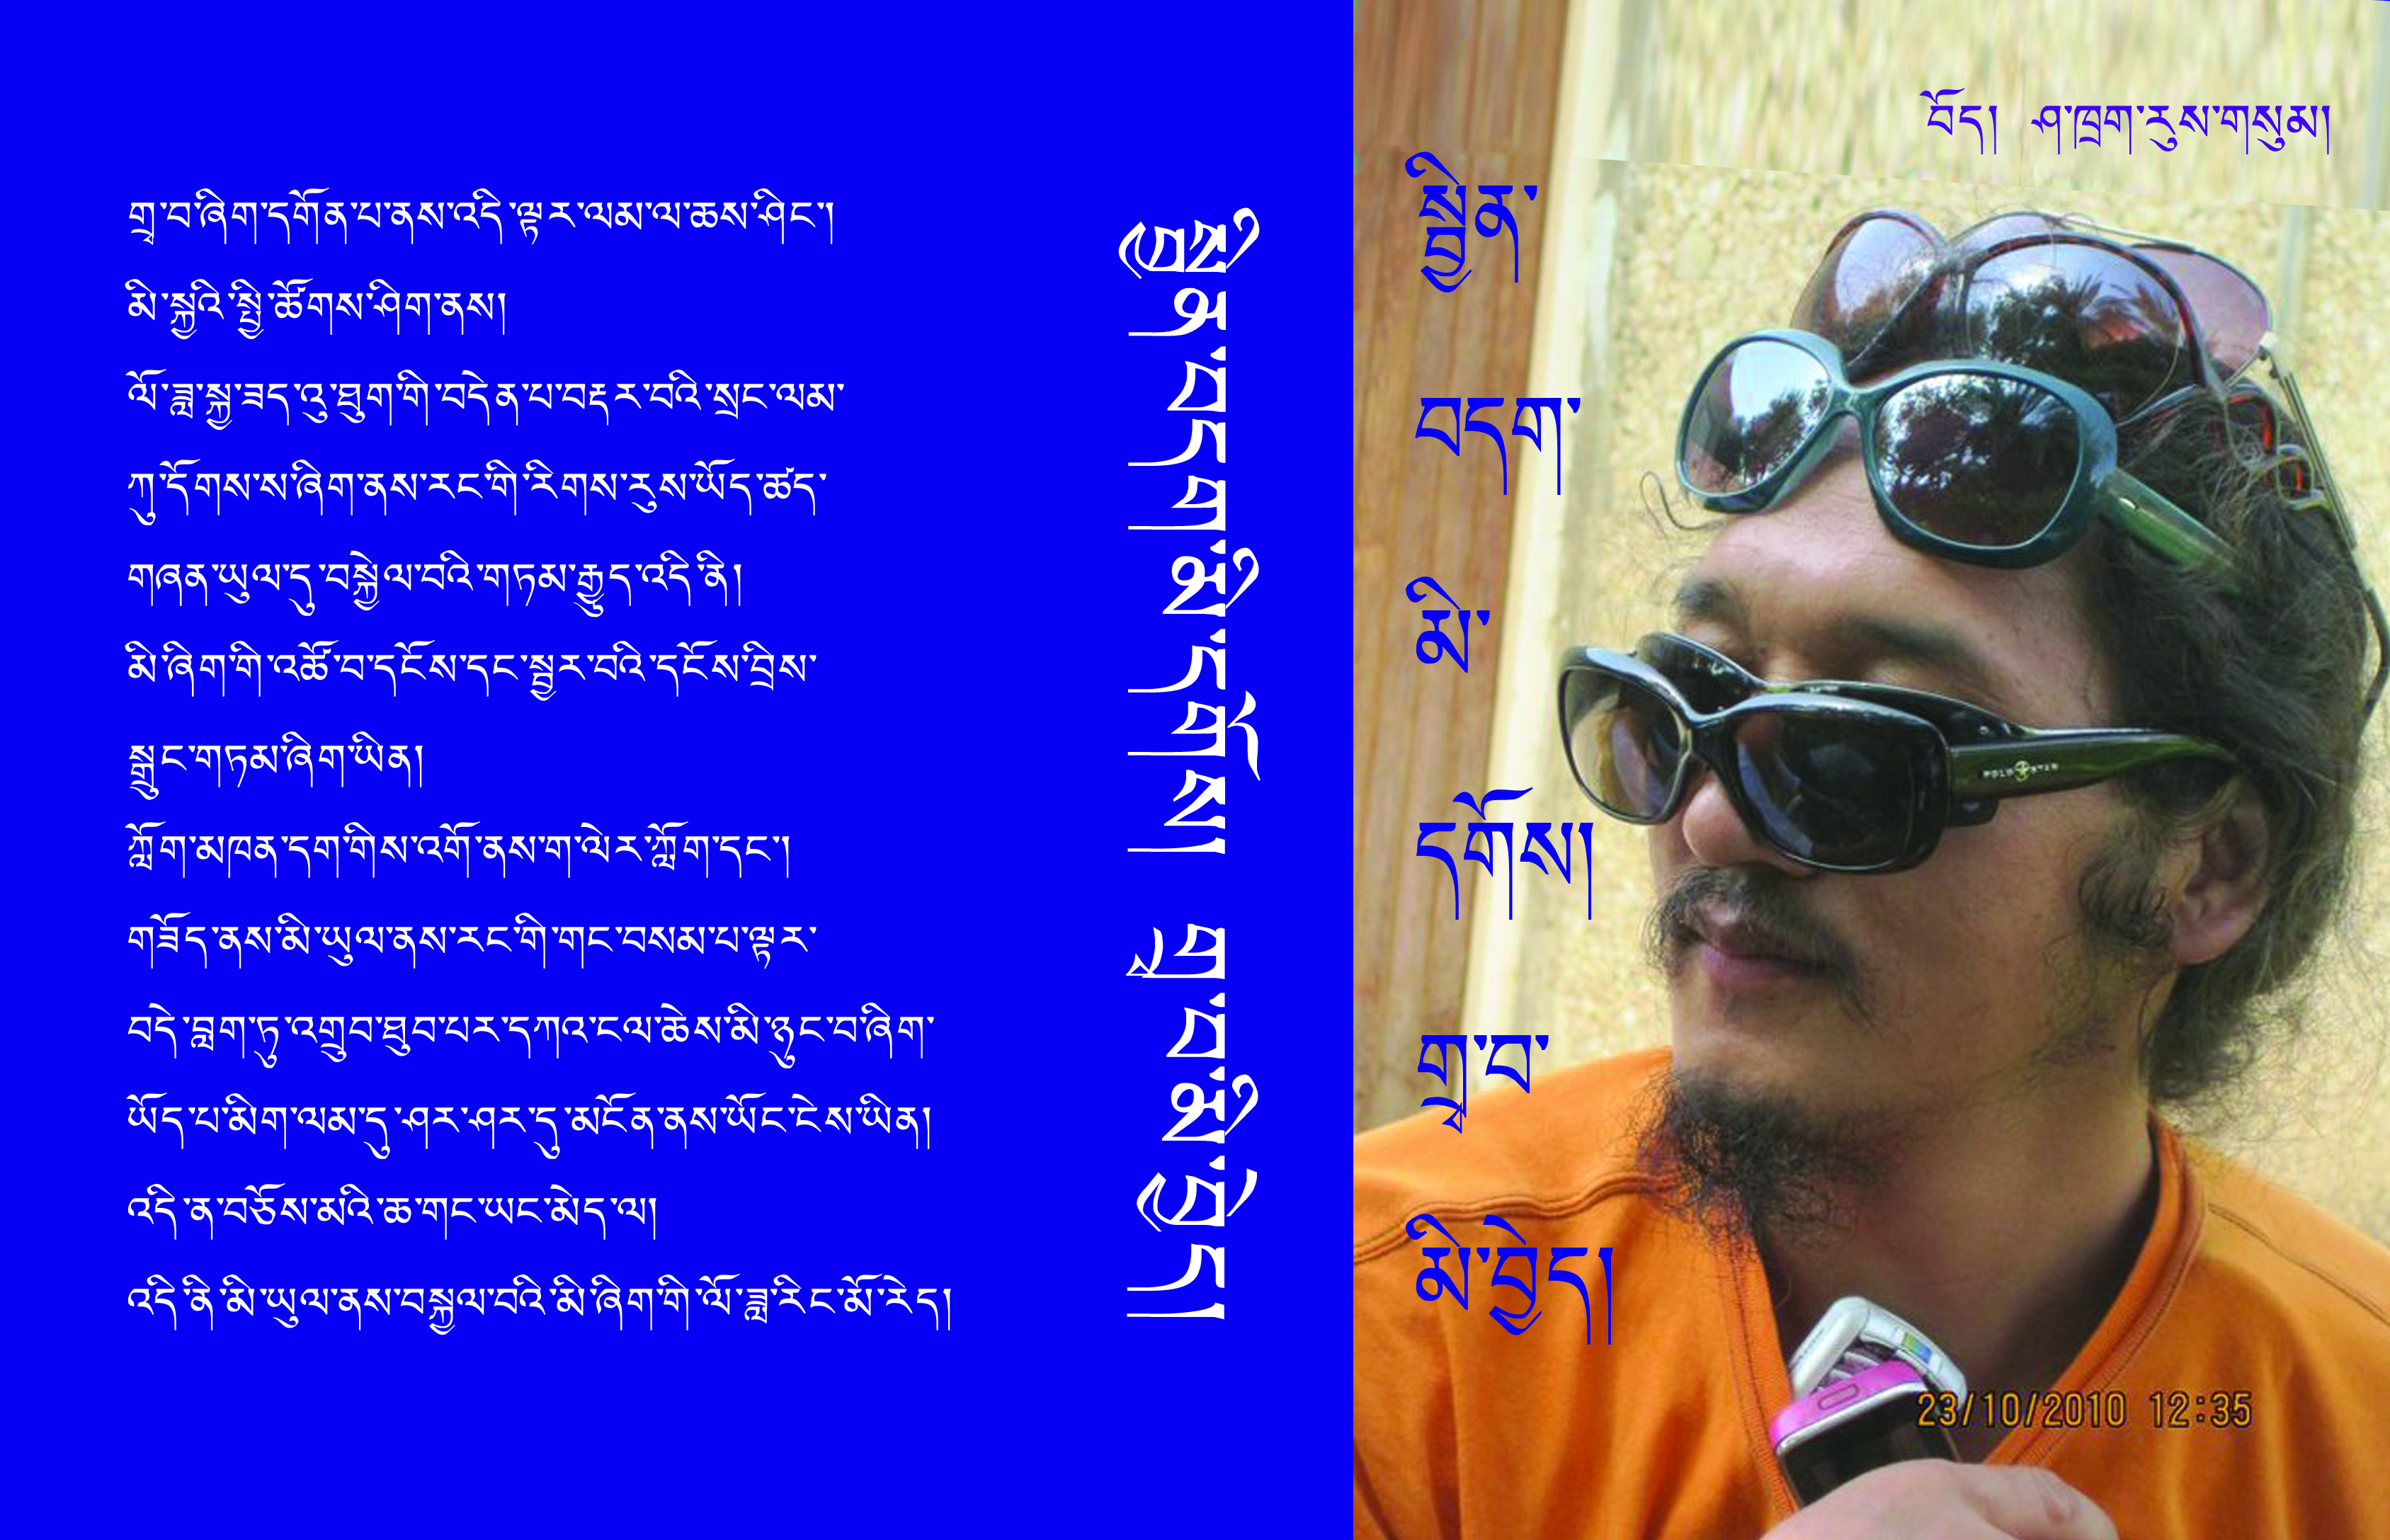 གྲྭ་བ་ཞིག་དགོན་པ་ནས་འདི་ལྟར་ལམ་ལ་ཆས་ཤིང་།
མི་སྐྱའི་སྤྱི་ཚོགས་ཤིག་ནས།
ལོ་ཟླ་སྐྱ་ཟད་འུ་ཐུག་གི་བདེན་པ་བརྡར་བའི་སྲང་ལམ་
ཀུ་དོགས་ས་ཞིག་ནས་རང་གི་རིགས་རུས་ཡོད་ཚད་
གཞན་ཡུལ་དུ་བསྐྱེལ་བའི་གཏམ་རྒྱུད་འདི་ནི།
མི་ཞིག་གི་འཚོ་བ་དངོས་དང་སྦྱར་བའི་དངོས་བྲིས་
སྒྲུང་གཏམ་ཞིག་ཡིན།
ཀློག་མཁན་དག་གིས་འགོ་ནས་ག་ལེར་ཀློག་དང་།
གཟོད་ནས་མི་ཡུལ་ནས་རང་གི་གང་བསམ་པ་ལྟར་
བདེ་བླག་ཏུ་འགྲུབ་ཐུབ་པར་དཀའ་ངལ་ཆེས་མི་ཉུང་བ་ཞིག་
ཡོད་པ་མིག་ལམ་དུ་ཤར་ཤར་དུ་མངོན་ནས་ཡོང་ངེས་ཡིན།
འདི་ན་བཅོས་མའི་ཆ་གང་ཡང་མེད་ལ།
འདི་ནི་མི་ཡུལ་ནས་བསྐྱལ་བའི་མི་ཞིག་གི་ལོ་ཟླ་རིང་མོ་རེད།
སྦྱིན་བདག་མི་དགོས། གྲྭ་བ་མི་བྱེད།
བོད། ཤ་ཁྲག་རུས་གསུམ།
སྦྱིན་
བདག་
མི་
དགོས།
གྲྭ་བ་
མི་བྱེད།
POLO STAR
23/10/2010 12:35